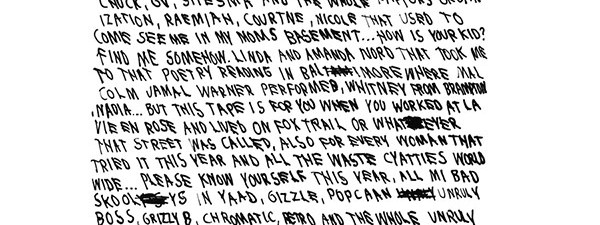 CHUCK, AND THE WHOLE RAPTORS ORGAN
IZATION, RAEMIAH, COURTNE, NICOLE THAT USED TO
COME SEE ME IN MY MOMS BASEMENT...HOW IS YOUR KID?
FIND ME SOMEHOW. LINDA AND AMANDA NORD THAT TOOK ME
TO THAT POETRY READING IN BALTIMORE WHERE MAL
COLM JAMAL WARNER PERFORMED, WHITNEY FROM BRAMPTON
,NADIA... BUT THIS TAPE IS FOR YOU WHEN YOU WORKED AT LA
VIE EN ROSE AND LIVED ON FOX TRAIL OR WHATEVER
THAT STREET WAS CALLED, ALSO FOR EVERY WOMAN THAT
TRIED IT THIS YEAR AND ALL THE WASTE CYATTIES WORLD
WIDE... PLEASE KNOW YOURSELF THIS YEAR, ALL MI BAD
SKOOL YS IN YAAD, GIZZLE, POPCAAN UNRULY
BOSS, GRIZZLY B, CHROMATIC, RETRO AND THE WHOLE UNRULY